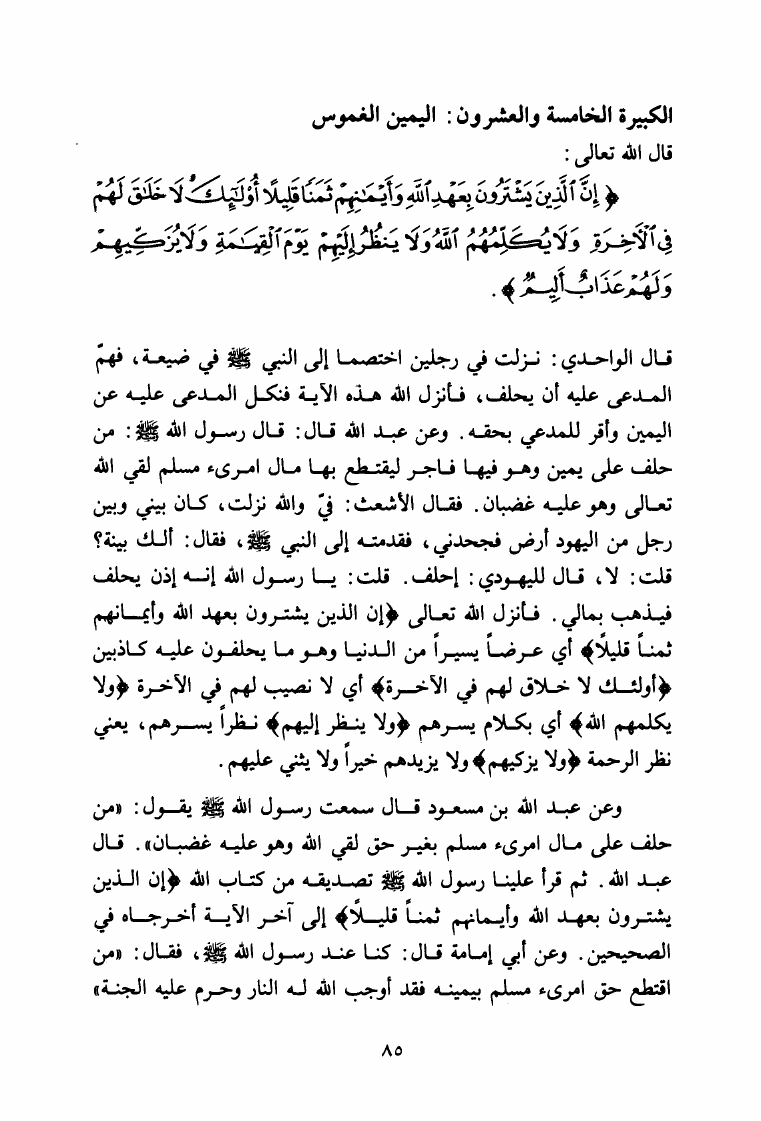 الكبيرة الخامسة والعشرون : اليمين الغموس
قال الله تعالى :
﴿ إِنَّ ٱلَّذِينَ يَشْتَرُونَ بِعَهْدِ ٱللَّهِ وَأَيْمَـٰنِهِمْ ثَمَنًا قَلِيلًا أُوْلَـٰٓئِكَ لَا خَلَـٰقَ لَهُمْ
فِى ٱلْأَخِرَةِ وَلَا يُكَلِّمُهُمُ ٱللَّهُ وَلَا يَنظُرُ إِلَيْهِمْ يَوْمَ ٱلْقِيَـٰمَةِ وَلَا يُزَكِّيهِمْ
وَلَهُمْ عَذَابٌ أَلِيمٌ ﴾ .
قال الواحدي : نزلت في رجلين اختصما إلى النبي ﷺ في ضيعة ، فهمّ
المدعى عليه أن يحلف ، فأنزل الله هذه الآية فنكل المدعى عليه عن
اليمين وأقر للمدعي بحقه . وعن عبد الله قال : قال رسول الله ﷺ : من
حلف على يمين وهو فيها فاجر ليقتطع بها مال امرىء مسلم لقي الله
تعالى وهو عليه غضبان . فقال الأشعث : فيّ والله نزلت ، كان بيني وبين
رجل من اليهود أرض فجحدني ، فقدمته إلى النبي ﷺ ، فقال : ألك بينة؟
قلت : لا ، قال لليهودي : إحلف . قلت : يا رسول الله إنه إذن يحلف
فيذهب بمالي . فأنزل الله تعالى ﴿إن الذين يشترون بعهد الله وأيمانهم
ثمناً قليلاً﴾ أي عرضاً يسيراً من الدنيا وهو ما يحلفون عليه كاذبين
﴿أولئك لا خلاق لهم في الآخرة﴾ أي لا نصيب لهم في الآخرة ﴿ولا
يكلمهم الله﴾ أي بكلام يسرهم ﴿ولا ينظر إليهم﴾ نظراً يسرهم ، يعني
نظر الرحمة ﴿ولا يزكيهم﴾ ولا يزيدهم خيراً ولا يثني عليهم .
وعن عبد الله بن مسعود قال سمعت رسول الله ﷺ يقول : «من
حلف على مال امرىء مسلم بغير حق لقي الله وهو عليه غضبان» . قال
عبد الله . ثم قرأ علينا رسول الله ﷺ تصديقه من كتاب الله ﴿إن الذين
يشترون بعهد الله وأيمانهم ثمناً قليلاً﴾ إلى آخر الآية أخرجاه في
الصحيحين . وعن أبي إمامة قال : كنا عند رسول الله ﷺ ، فقال : «من
اقتطع حق امرىء مسلم بيمينه فقد أوجب الله له النار وحرم عليه الجنة»
٨٥